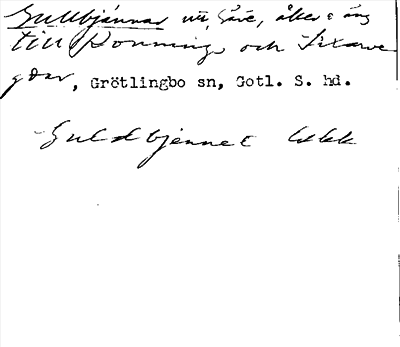 Gullbjännar utt, Såre, åker o äng
till Ronnings och Sixarve
gdar, Grötlingbo sn, Gotl. S. hd.
Guldbjennet Ukk